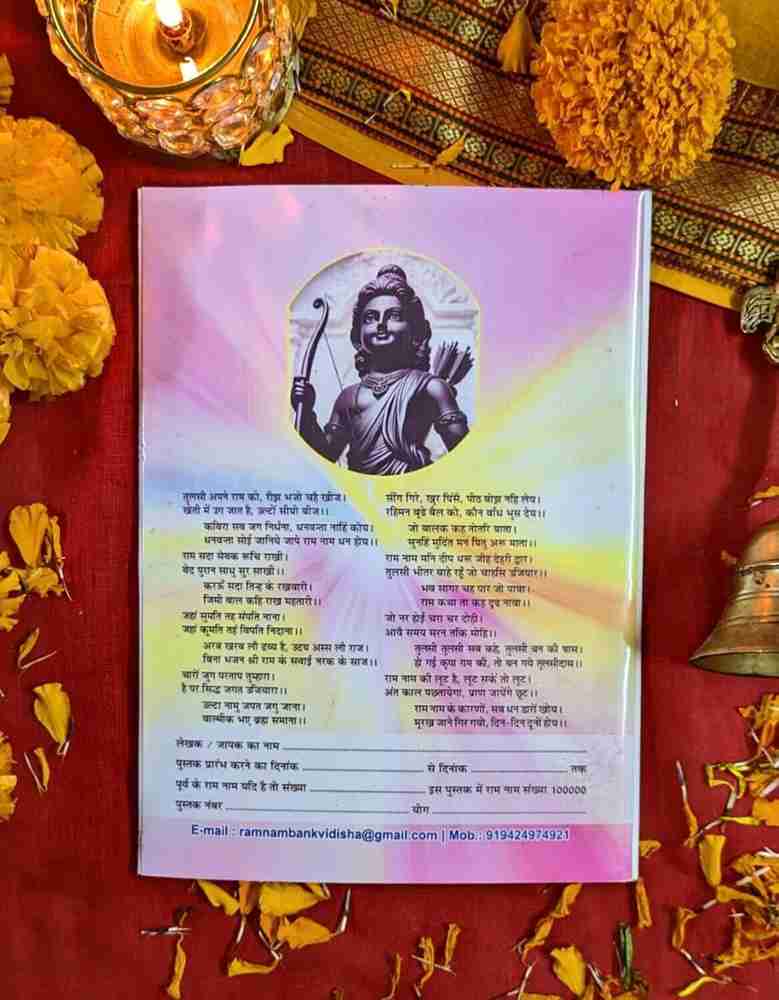 तुलसी अपने राम को, रीझ भजो चहै खीज।
खेती में उग जात है, उल्टो सीधी बीज।।
कबिरा सब जग निर्धना, धनवन्ता नाहिं कोय।
धनवन्ता सोई जानिये जापे राम नाम धन होय।।
राम सदा सेवक रूचि राखी।
वेद पुरान साधु सुर साखी।।
करऊँ सदा तिन्ह के रखवारी।
जिमी बाल कहि राख महतारी।।
जहां सुमति तहं संपति नाना।
जहां कुमति तहं विपति निदाना।।
अरब खरब लौ द्रव्य है, उदय अस्स लौ राज।
बिना भजन श्री राम के सवाई नरक के साज।।
चारों जुग परताप तुम्हारा।
है पर सिद्ध जगत उजियारा।।
उल्टा नामु जपत जगु जाना।
बाल्मीक भए ब्रह्म समाना।।
सींग गिरे, खुर घिसें, पीठ बोझ नहि लेय।
रहिमन बूढे बैल को, कौन बांधे भुस देय।।
जो बालक कह तोतरि बाता।
सुनहिं मुदित मन पितु अरू माता।।
राम नाम मनि दीप धरू जीह देहरी द्वार।
तुलसी भीतर बाहे रहूँ जो चाहसि उजियार।।
भव सागर चह पार जो पावा।
राम कथा ता कह दृढ नावा।।
जो नर होई चरा चर द्रोही।
आवै समय सरन तकि मोहि।।
तुलसी तुलसी सब कहे, तुलसी बन की घास।
हो गई कृपा राम की, तो बन गये तुलसीदास।।
राम नाम की लूट है, लूट सके तो लूट।
अंत काल पछतायेगा, प्राण जायेंगे छूट।।
राम नाम के कारणों, सब धन डारों खोय।
मूरख जाने गिर गयो, दिन-दिन दूनों होय।।
लेखक / जापक का नाम
पुस्तक प्रारंभ करने का दिनांक से दिनांक तक
पूर्व के राम नाम यदि है तो संख्या इस पुस्तक में राम नाम संख्या 100000
पुस्तक नंबर योग
E-mail : ramnambankvidisha@gmail.com | Mob.: 919424974921